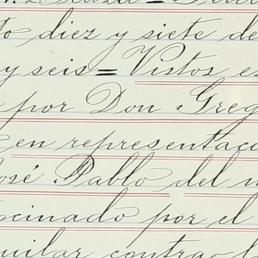 to diez y siete de
y seis = Vistos es
por Don Greg
en representac
José Pablo del
cinado por el
uilar contra l